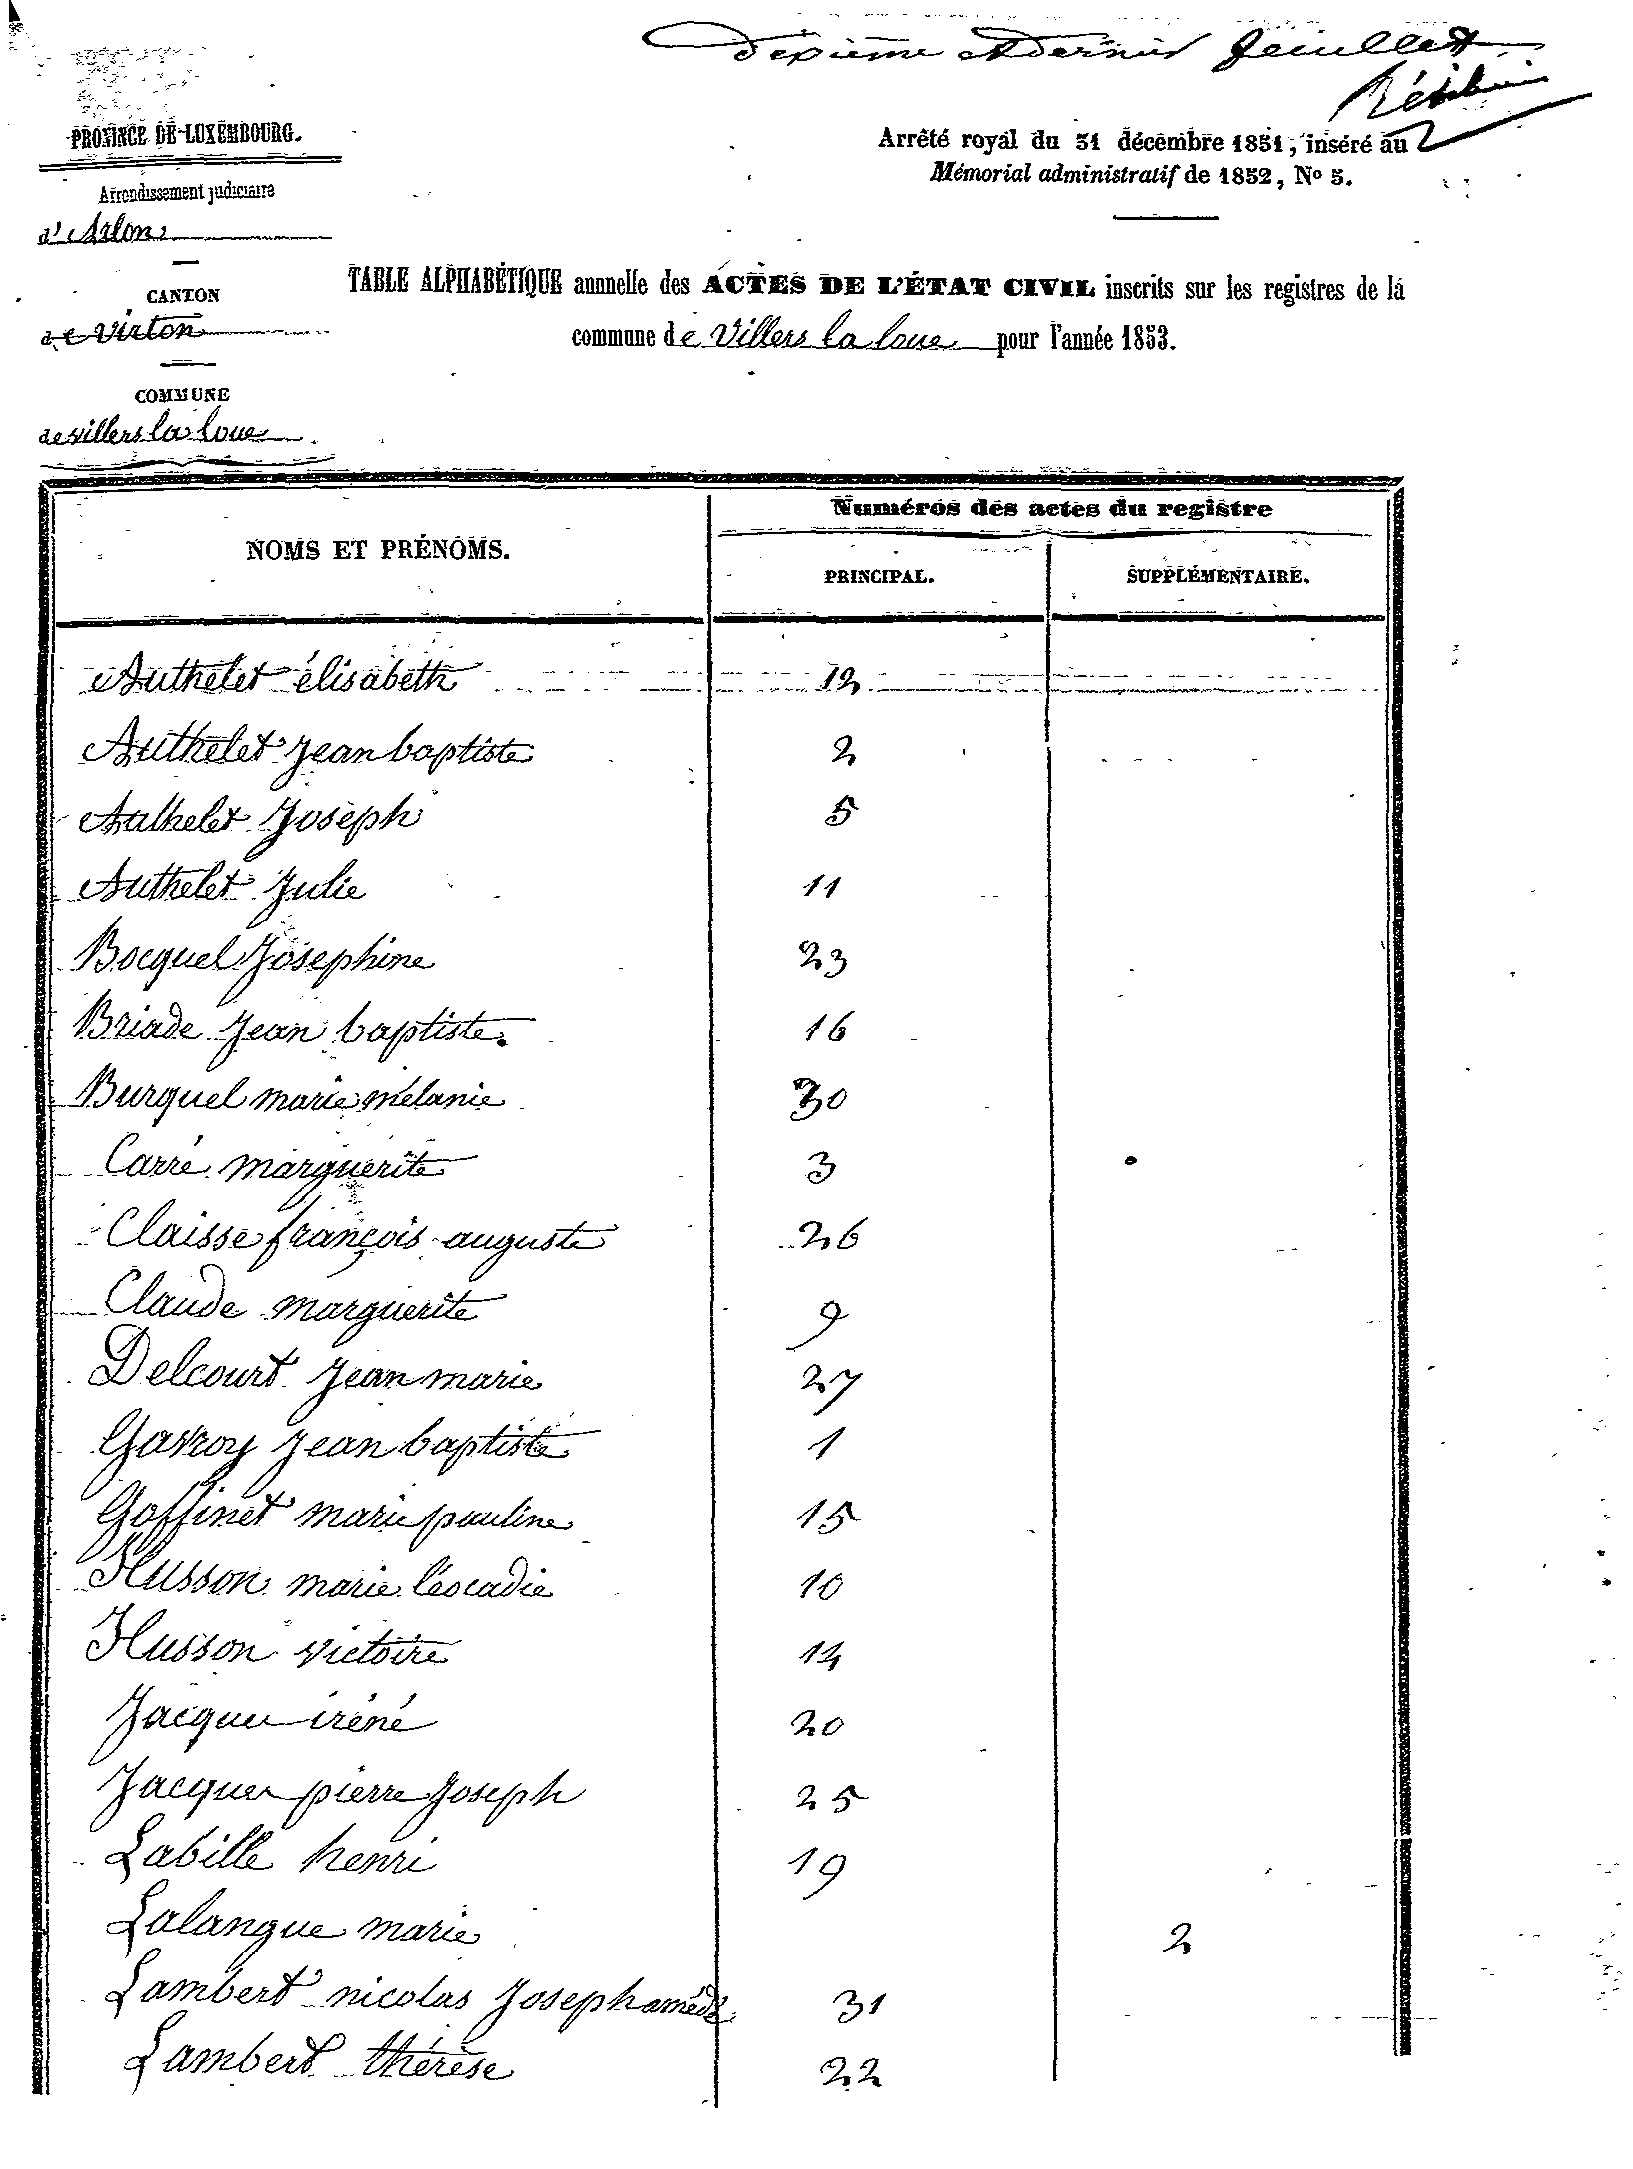 dixième et dernier feuillet
PROVINCE DE LUXEMBOURG.
Arrêté royal du 31 décembre 1851, inséré au
Mémorial administratif de 1852, No 5.
Arrondissement judiciaire
d'Arlon
CANTON
de Virton
COMMUNE
de villers la loue
TABLE ALPHABÉTIQUE annuelle des ACTES DE L'ÉTAT CIVIL inscrits sur les registres de la
commune de Villers la loue pour l'année 1853.
NOMS ET PRÉNOMS.
Numéros des actes du registre
PRINCIPAL.
SUPPLÉMENTAIRE.
Authelet élisabeth 12
Authelet Jean baptiste 2
Authelet Joseph 5
Authelet Julie 11
Bocquel Josephine 23
Briade Jean baptiste. 16
Burquel marie mélanie 30
Carré marguerite 3
Claisse françois auguste 26
Claude marguerite 9
Delcourt Jean marie 27
Gavroy Jean baptiste 1
Goffinet marie pauline 15
Husson marie léocadie 10
Husson victoire 14
Jacques iréné 20
Jacques pierre Joseph 25
Labille henri 19
Lalangue marie 2
Lambert nicolas Joseph amédé 31
Lambert thérèse 22